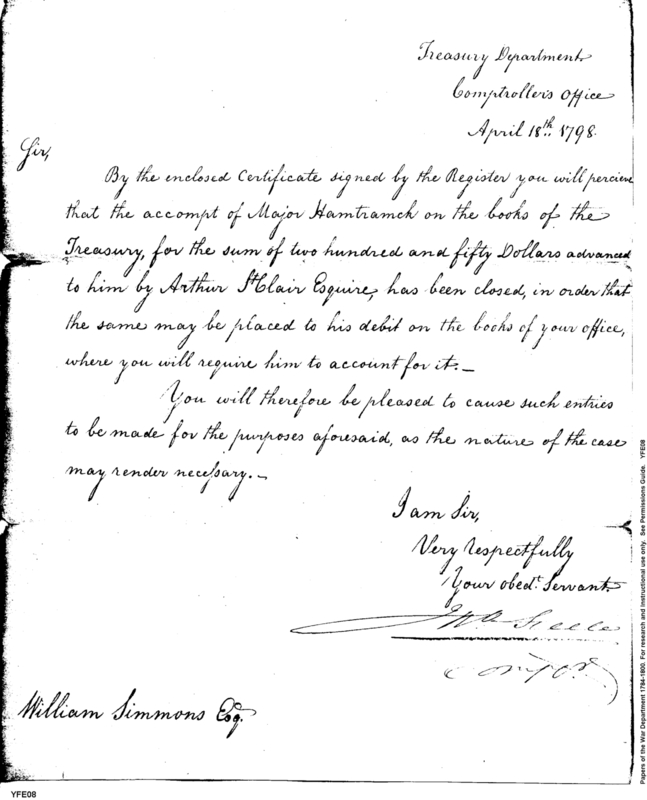 Treasury Department
Comptroller's Office
April 18th. 1798.
Sir,
By the enclosed Certificate signed by the Register you will percieve
that the accompt of Major Hamtramck on the books of the
Treasury, for the sum of two hundred and fifty Dollars advanced
to him by Arthur St. Clair Esquire, has been closed, in order that
the same may be placed to his debit on the books of your office,
where you will require him to account for it.—
You will therefore be pleased to cause such entries
to be made for the purposes aforesaid, as the nature of the case
may render necessary.—
I am Sir,
Very respectfully
Your obedt. Servant.
Jno. Steele
Compr.
William Simmons Esq.
YFE08
Papers of the War Department 1784-1800. For research and instructional use only. See Permissions Guide. YFE08